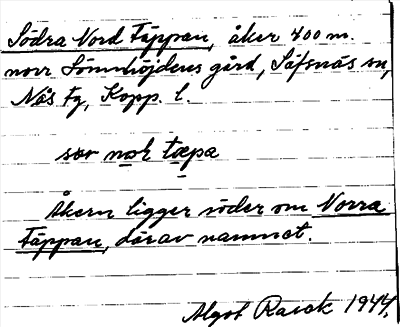 Södra Nord Täppan, åker 400 m.
norr Sömnhöjdens gård, Säfsnäs sn,
Nås tg, Kopp. l.
sœr noḷ tœpa
Åkern ligger söder om Norra
Täppan, därav namnet.
Algot Raick 1944.